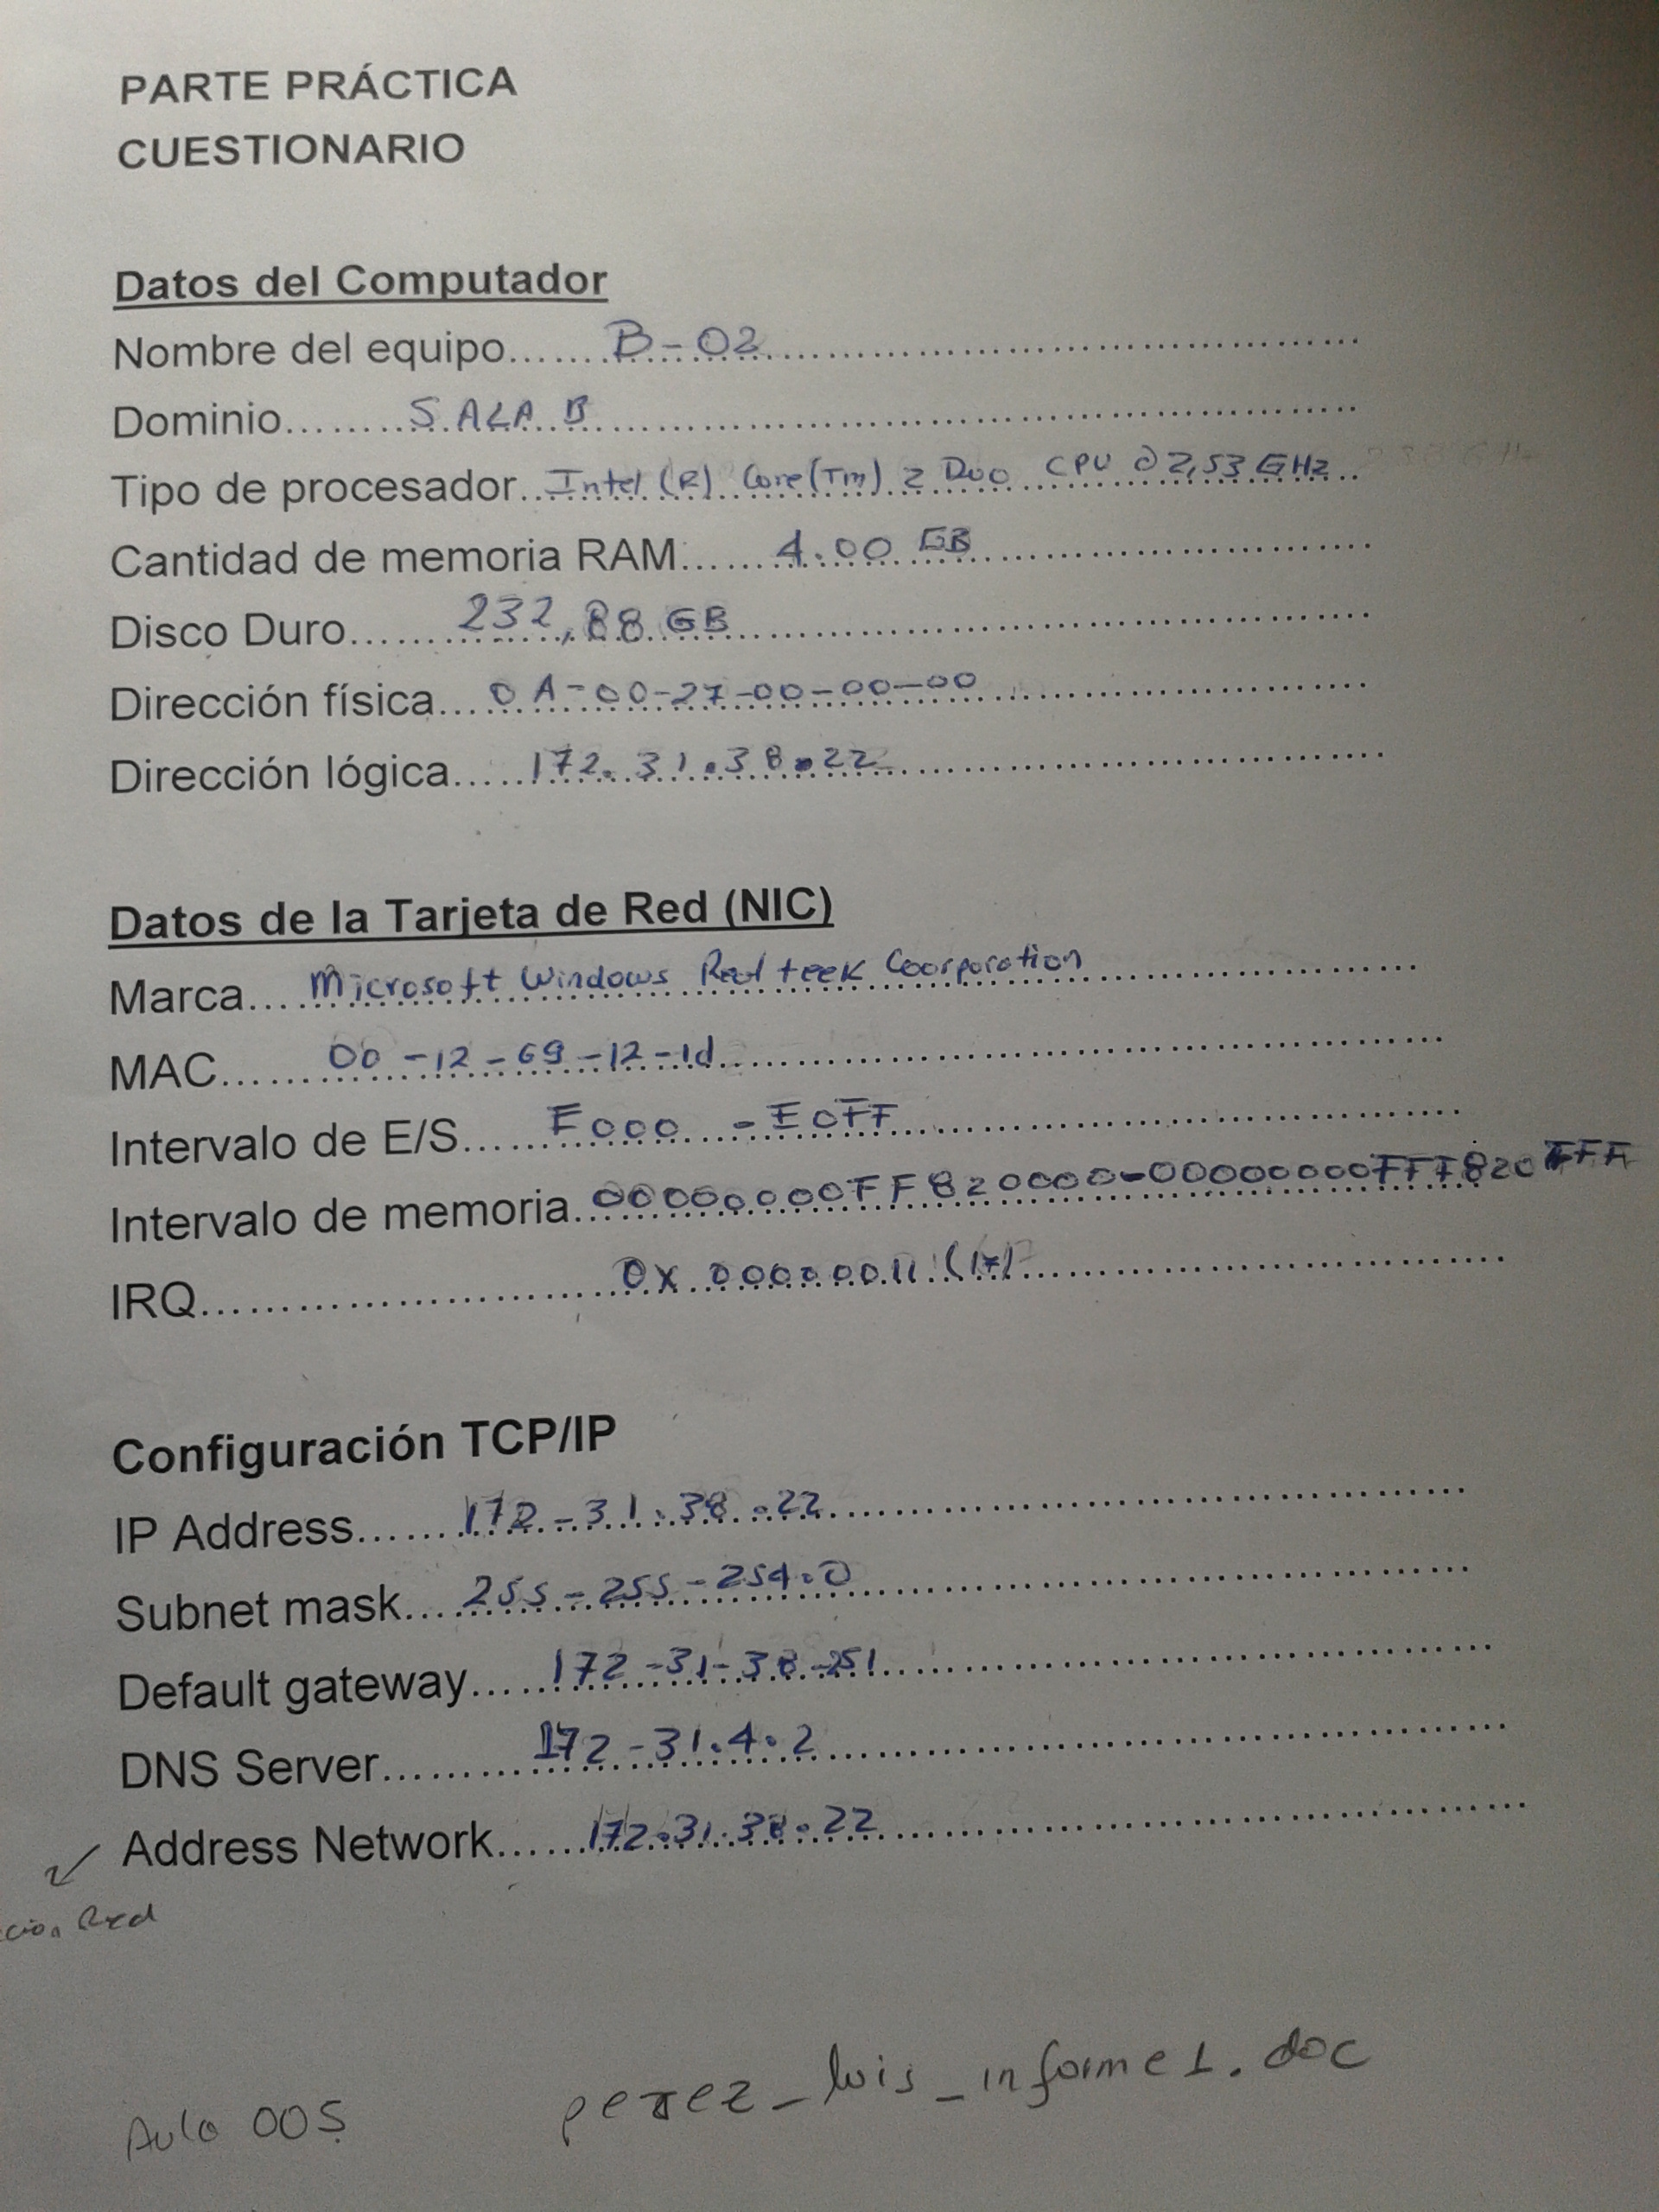 PARTE PRÁCTICA
CUESTIONARIO
Datos del Computador
Nombre del equipo.......B-02
Dominio........SALA B
Tipo de procesador...Intel (R) Core(Tm) 2 Duo CPU @ 2,53 GHz
Cantidad de memoria RAM......4.00 GB
Disco Duro......232,88 GB
Dirección física...0A-00-27-00-00-00
Dirección lógica.....172.31.38.22
Datos de la Tarjeta de Red (NIC)
Marca....Microsoft Windows Realteek Coorporation
MAC......00-12-69-12-1d
Intervalo de E/S.....E000 - E0FF
Intervalo de memoria...00000000FF820000-00000000FFF820FFF
IRQ..........0x00000011 (17)
Configuración TCP/IP
IP Address......172-31.38.22
Subnet mask....255-255-254.0
Default gateway.....172-31-38-251
DNS Server........172-31.4.2
Address Network......172.31.38.22
Red
Aula 005
perez_luis_informe1.doc